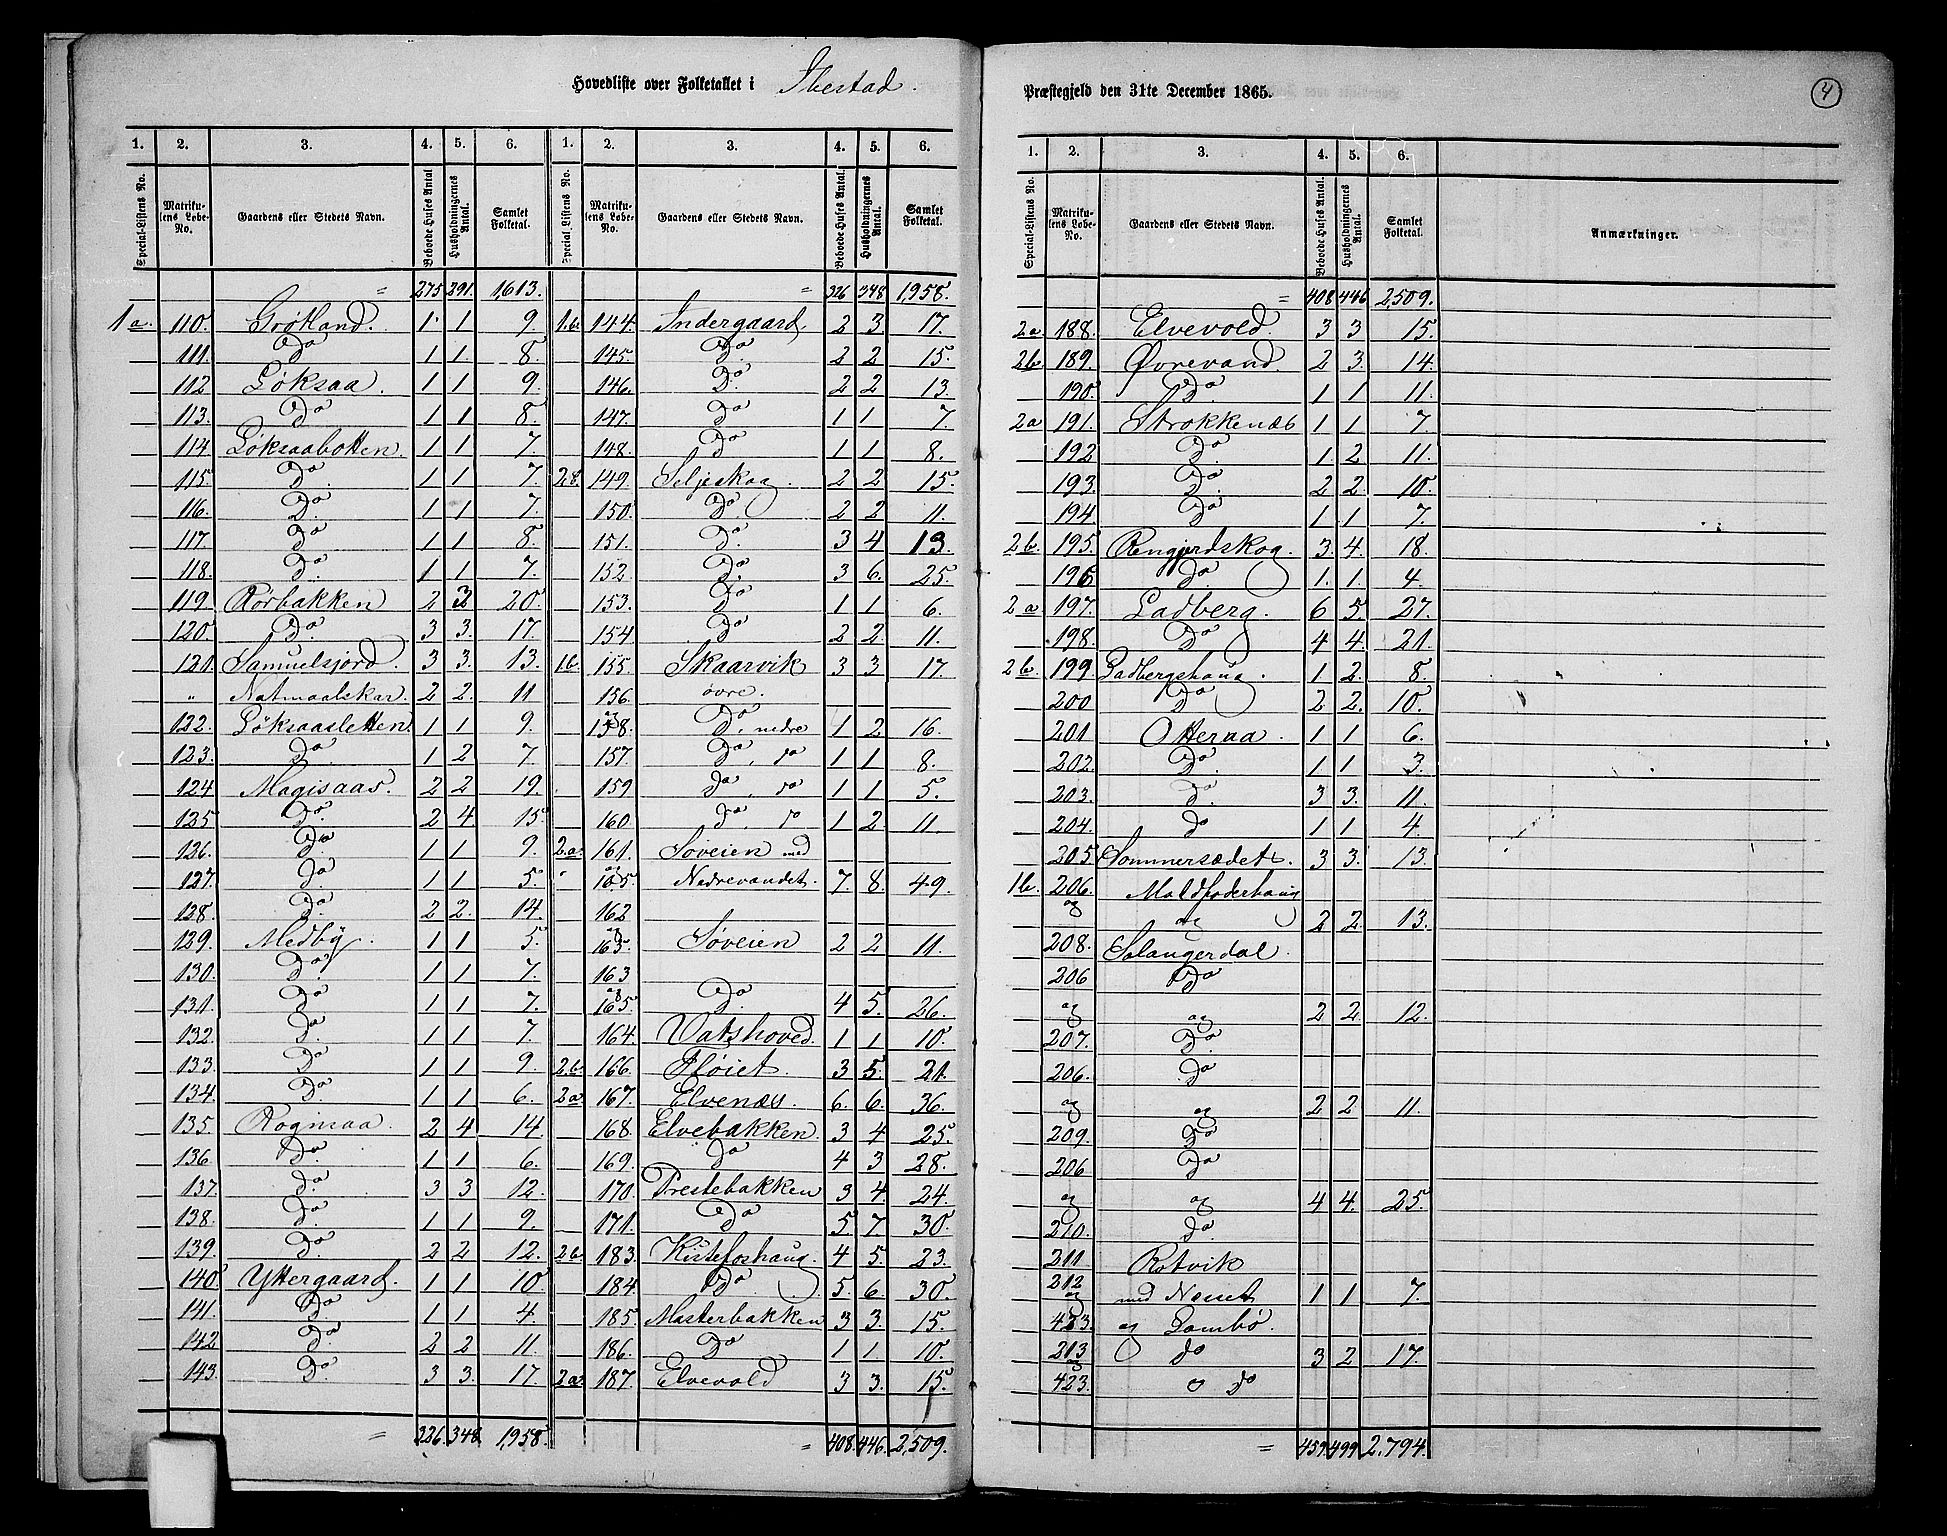 Hovedliste over Folketallet i Ibestad.
1. 2. 3. 4. 5. 6. 1. 2. 3. 4. 5. 6.
Special-Listens No. Matrikulens Løbe-No. Gaardens eller Stedets Navn. Beboede Huses Antal. Husholdningernes Antal. Samlet Folketal. Special Listens No. Matrikulens Løbe-No. Gaardens eller Stedets Navn. Beboede Huses Antal. Husholdningernes Antal. Samlet Folketal.
= 275 291. 1,613.
1a. 110. Grøtland. 1. 1 9.
111. Do 1 1. 8.
112 Løksaa. 1 1 9.
113. Do 1 1. 8.
114. Løksaabotten. 1. 1 7.
115. Do. 1 1 7.
116. Do. 1 1. 7.
117. Do 1 1. 8.
118. Do. 1 1. 7.
119. Rørbakken 2 3 20.
120. Do. 3 3. 17.
121. Samuelsjord. 3 3. 13.
" Natmaalskar. 2 2. 11
122. Løksaasletten. 1 1 9.
123. Do. 1 2 7.
124 Magisaas. 2 2 19.
125. Do. 2 4. 15.
126. Do 1 1. 9.
127. Do. 1 1. 5.
128. Do. 2 2. 14.
129. Medby. 1 1. 5.
130. Do. 1 1. 7.
131. Do 1 1. 7.
132. Do. 1 1. 7.
133. Do 1 1. 9.
134. Do. 1 1. 6.
135. Rogmaa. 2 4 14.
136. Do. 1 1 6.
137. Do. 3 3. 12.
138. Do. 1 1 9.
139. Do. 2 2 12.
140. Yttergaard. 1 1. 10.
141. Do 1 1. 4.
142 Do 2 2. 11.
143. Do. 3 3. 17.
= 326. 348. 1,958.
= 326 348 1,958.
1b. 144. Indergaard. 2 3. 17.
145. Do. 2 2 15.
146. Do. 2 2 13.
147. Do 1 1. 7.
148. Do 1 1 8.
2b. 149. Seljeskog. 2 2 15.
150. Do 2 2 11.
151. Do. 3 4 13.
152. Do. 3 6. 25.
153. Do 1 1 6.
154. Do 2 2. 11.
1b. 155. Skaarvik 3 3 17.
156. øvre.
og
158. Do, nedre 1 2 16.
157 Do, do 1 1 8.
159 do, do 1 1 5.
160. do, do 1 2 11.
2a. 161. Søveien med
og
165. Nedrevandet. 7. 8. 49.
162
og
165. Søveien 2 2 11.
163
og
165. Do. 4 5. 26.
164. Vatshoved. 1 1 10.
2b. 166. Fløiet. 3 5. 21.
2a 167. Elvenæs. 6. 6. 36.
168. Elvebakken. 3 4 25.
169. do 4 3 28.
170. Prestebakken 3 4. 24.
171. Do 5. 7. 30.
2b. 183. Kistefoshaug. 4 5. 23.
184. Do 5. 6. 30.
185. Masterbakken 3 3. 15.
186. Do 1 1. 10.
2a. 187. Elvevold 3 3. 15.
= 408 446. 2,509.
Præstegjeld den 31te December 1865.
4
1. 2. 3. 4. 5. 6.
Special-Listens No. Matrikulens Løbe-No. Gaardens eller Stedets Navn. Beboede Huses Antal. Husholdningernes Antal. Samlet Folketal. Anmærkninger.
= 408 446 2,509.
2a 188. Elvevold. 3 3. 15.
2b 189. Øvrevand. 2 3. 14.
190. Do. 1 1 11.
2a 191. Strokkenæs 1 1 7.
192 Do. 1. 2 11.
193. Do. 2 2. 10.
194 Do 1 1 7.
2b. 195. Rengjerdskog. 3. 4. 18.
196 Do. 1. 1. 4.
2a 197. Ladberg. 6 5. 27.
198. Do 4 4. 21.
2b. 199. Ladbergshaug. 1 2. 8.
200 Do 2 2. 10.
201 Otteraa. 1 1 6.
202. Do. 1 1 3.
203. do. 3 3. 11.
204. do 1 1 4.
205 Sommersædet. 3 3. 13.
1b. 206. Moldfoderhaug
og og 2 2. 13.
208. Solaugerdal.
206 Do
og og 2 2. 12.
207. Do.
206. do
og og 2 2 11.
209. Do
206 Do
og og 4 4. 25.
210. do.
211 Rotvik
212
og med Nesset 1 1 7.
423. og Lombø.
213 do 3 2 17.
og
423. o do
= 459. 499. 2.794.